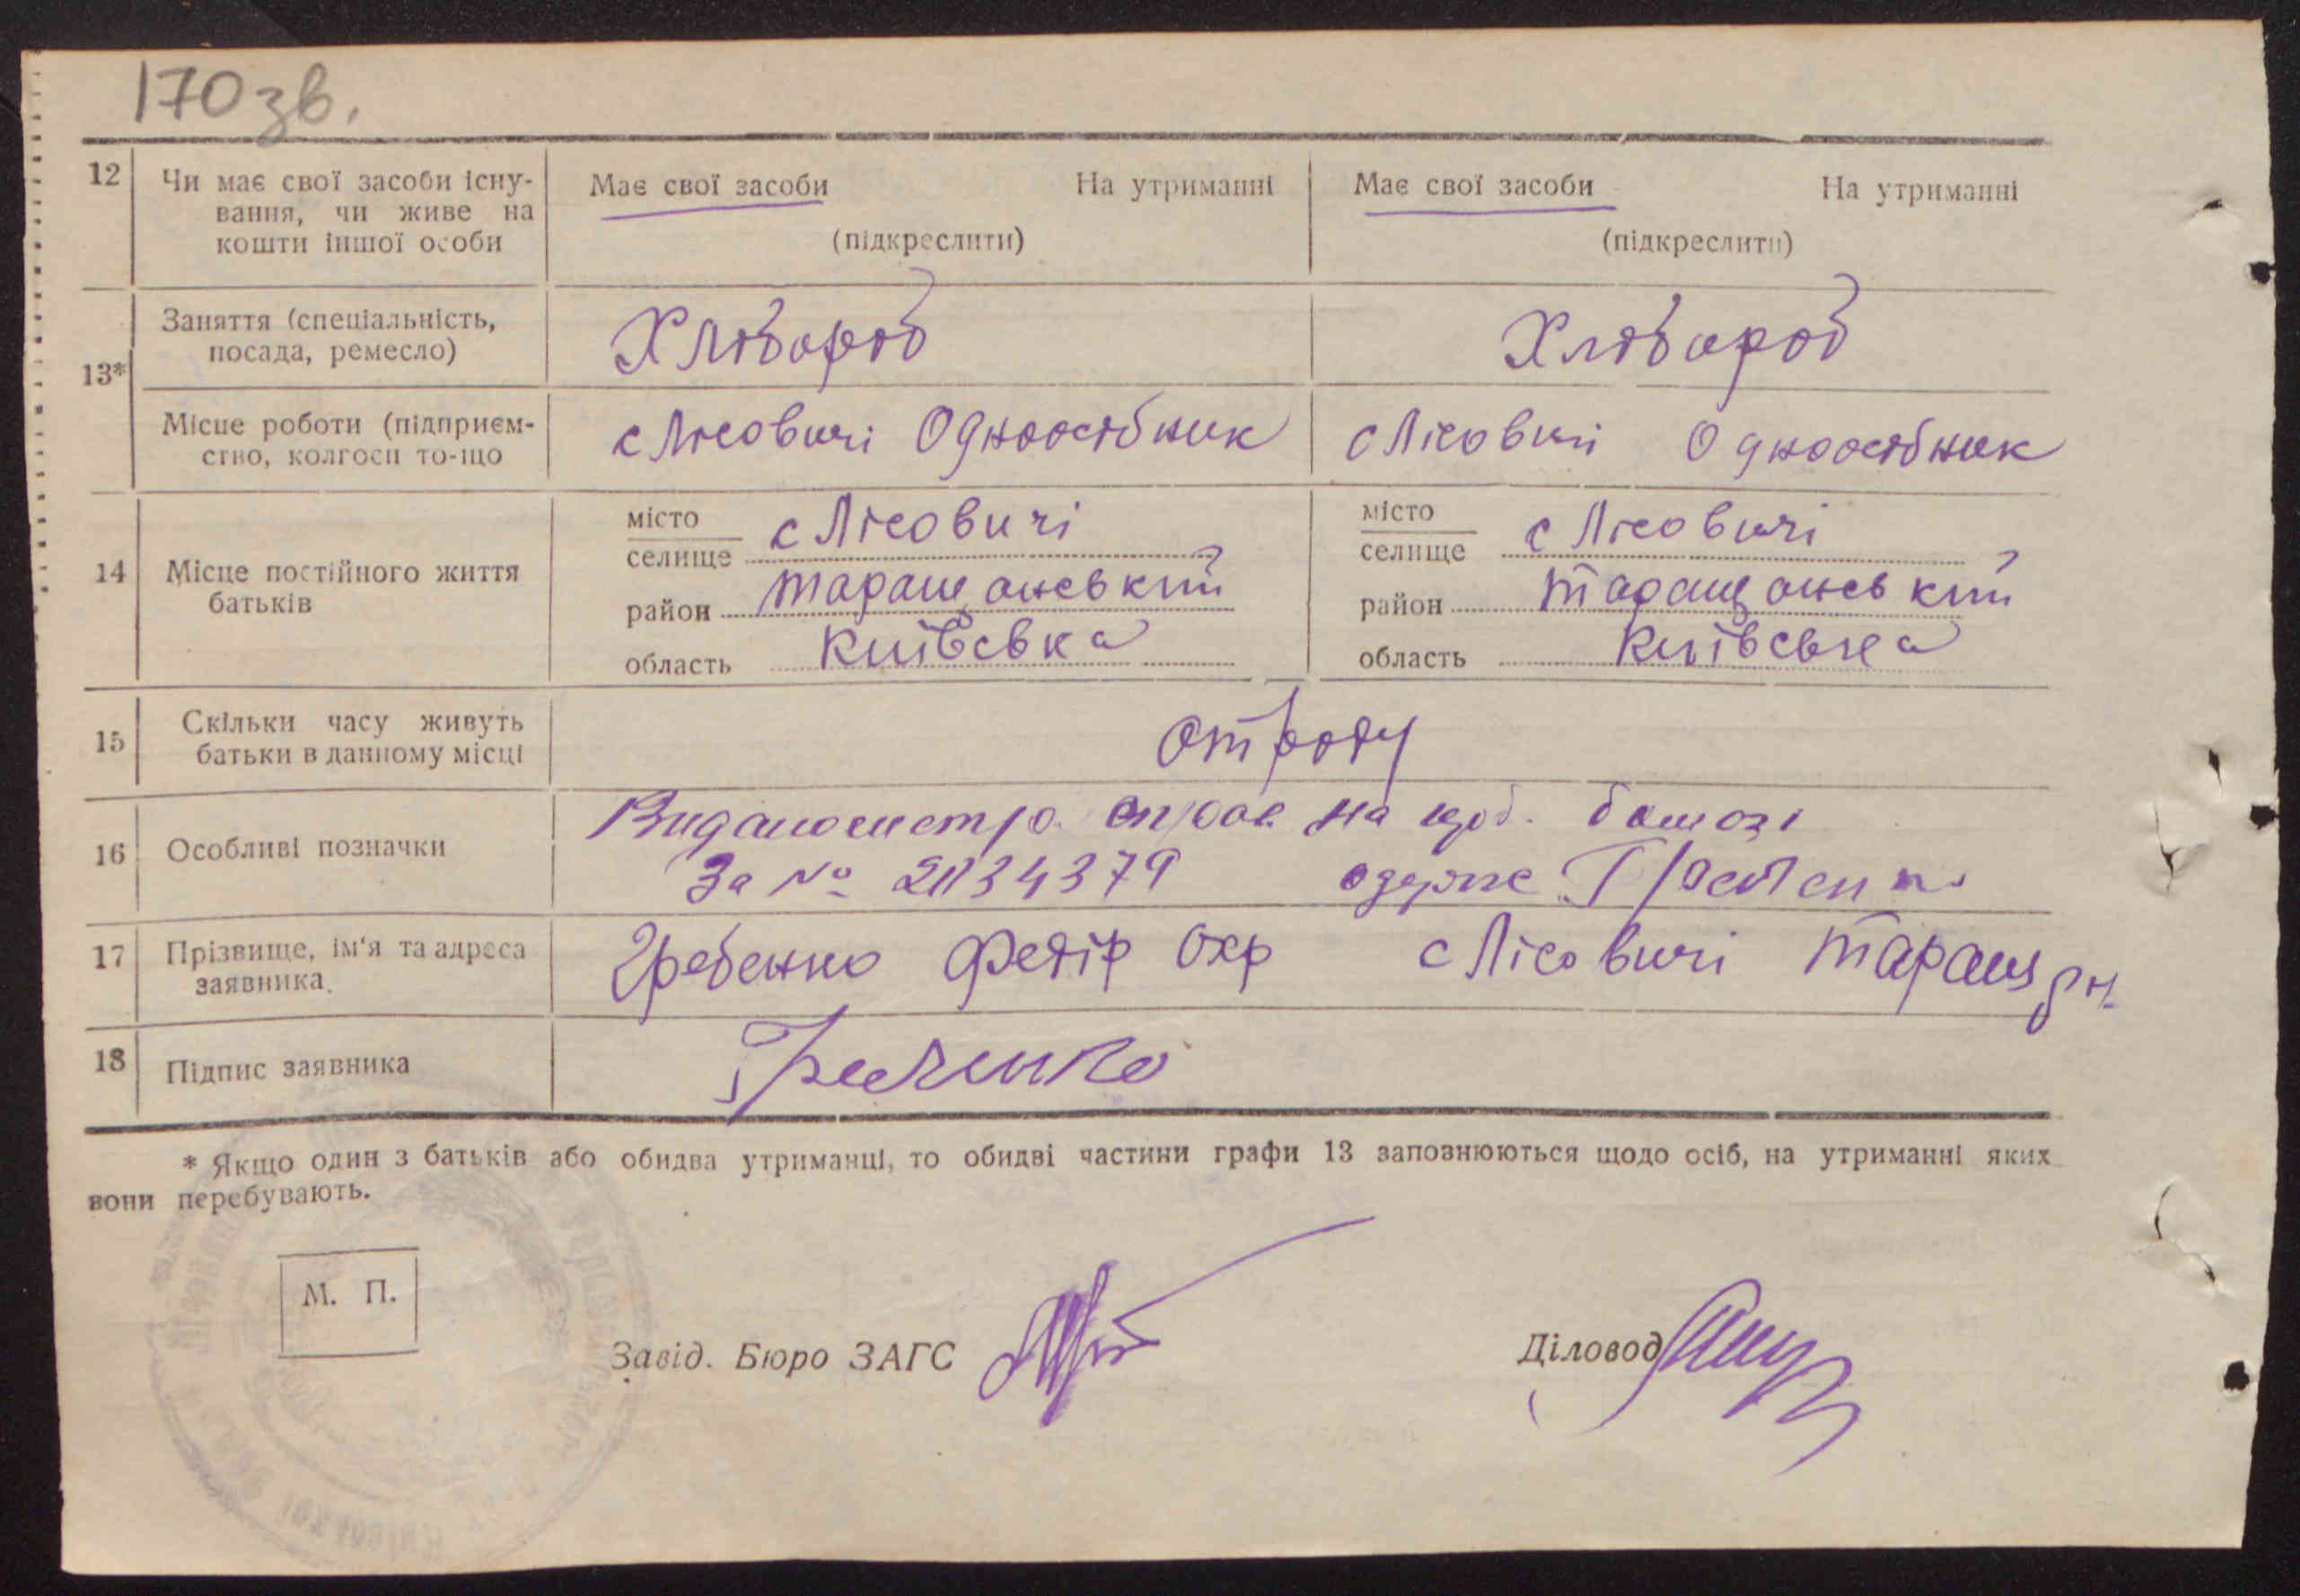 170 зв.
12 Чи має свої засоби існу- Має свої засоби На утриманні Має свої засоби На утриманні
вання, чи живе на
кошти іншої особи (підкреслити) (підкреслити)
Заняття (спеціальність, Хлібороб Хлібороб
посада, ремесло)
13*
Місце роботи (підприєм- с Лісовичі Одноосібник с Лісовичі Одноосібник
ство, колгосп то-що
місто с Лісовичі місто с Лісовичі
селище селище
14 Місце постійного життя
батьків район Таращанський район Таращанський
область Київська область Київська
15 Скільки часу живуть Отроду
батьки в данному місці
16 Особливі позначки на
За № 2034379
17 Прізвище, ім'я та адреса Гребенко Федір Охр с Лісовичі Таращ рн.
заявника.
18 Підпис заявника
* Якщо один з батьків або обидва утриманці, то обидві частини графи 13 заповнюються щодо осіб, на утриманні яких
вони перебувають.
М. П.
Завід. Бюро ЗАГС Діловод